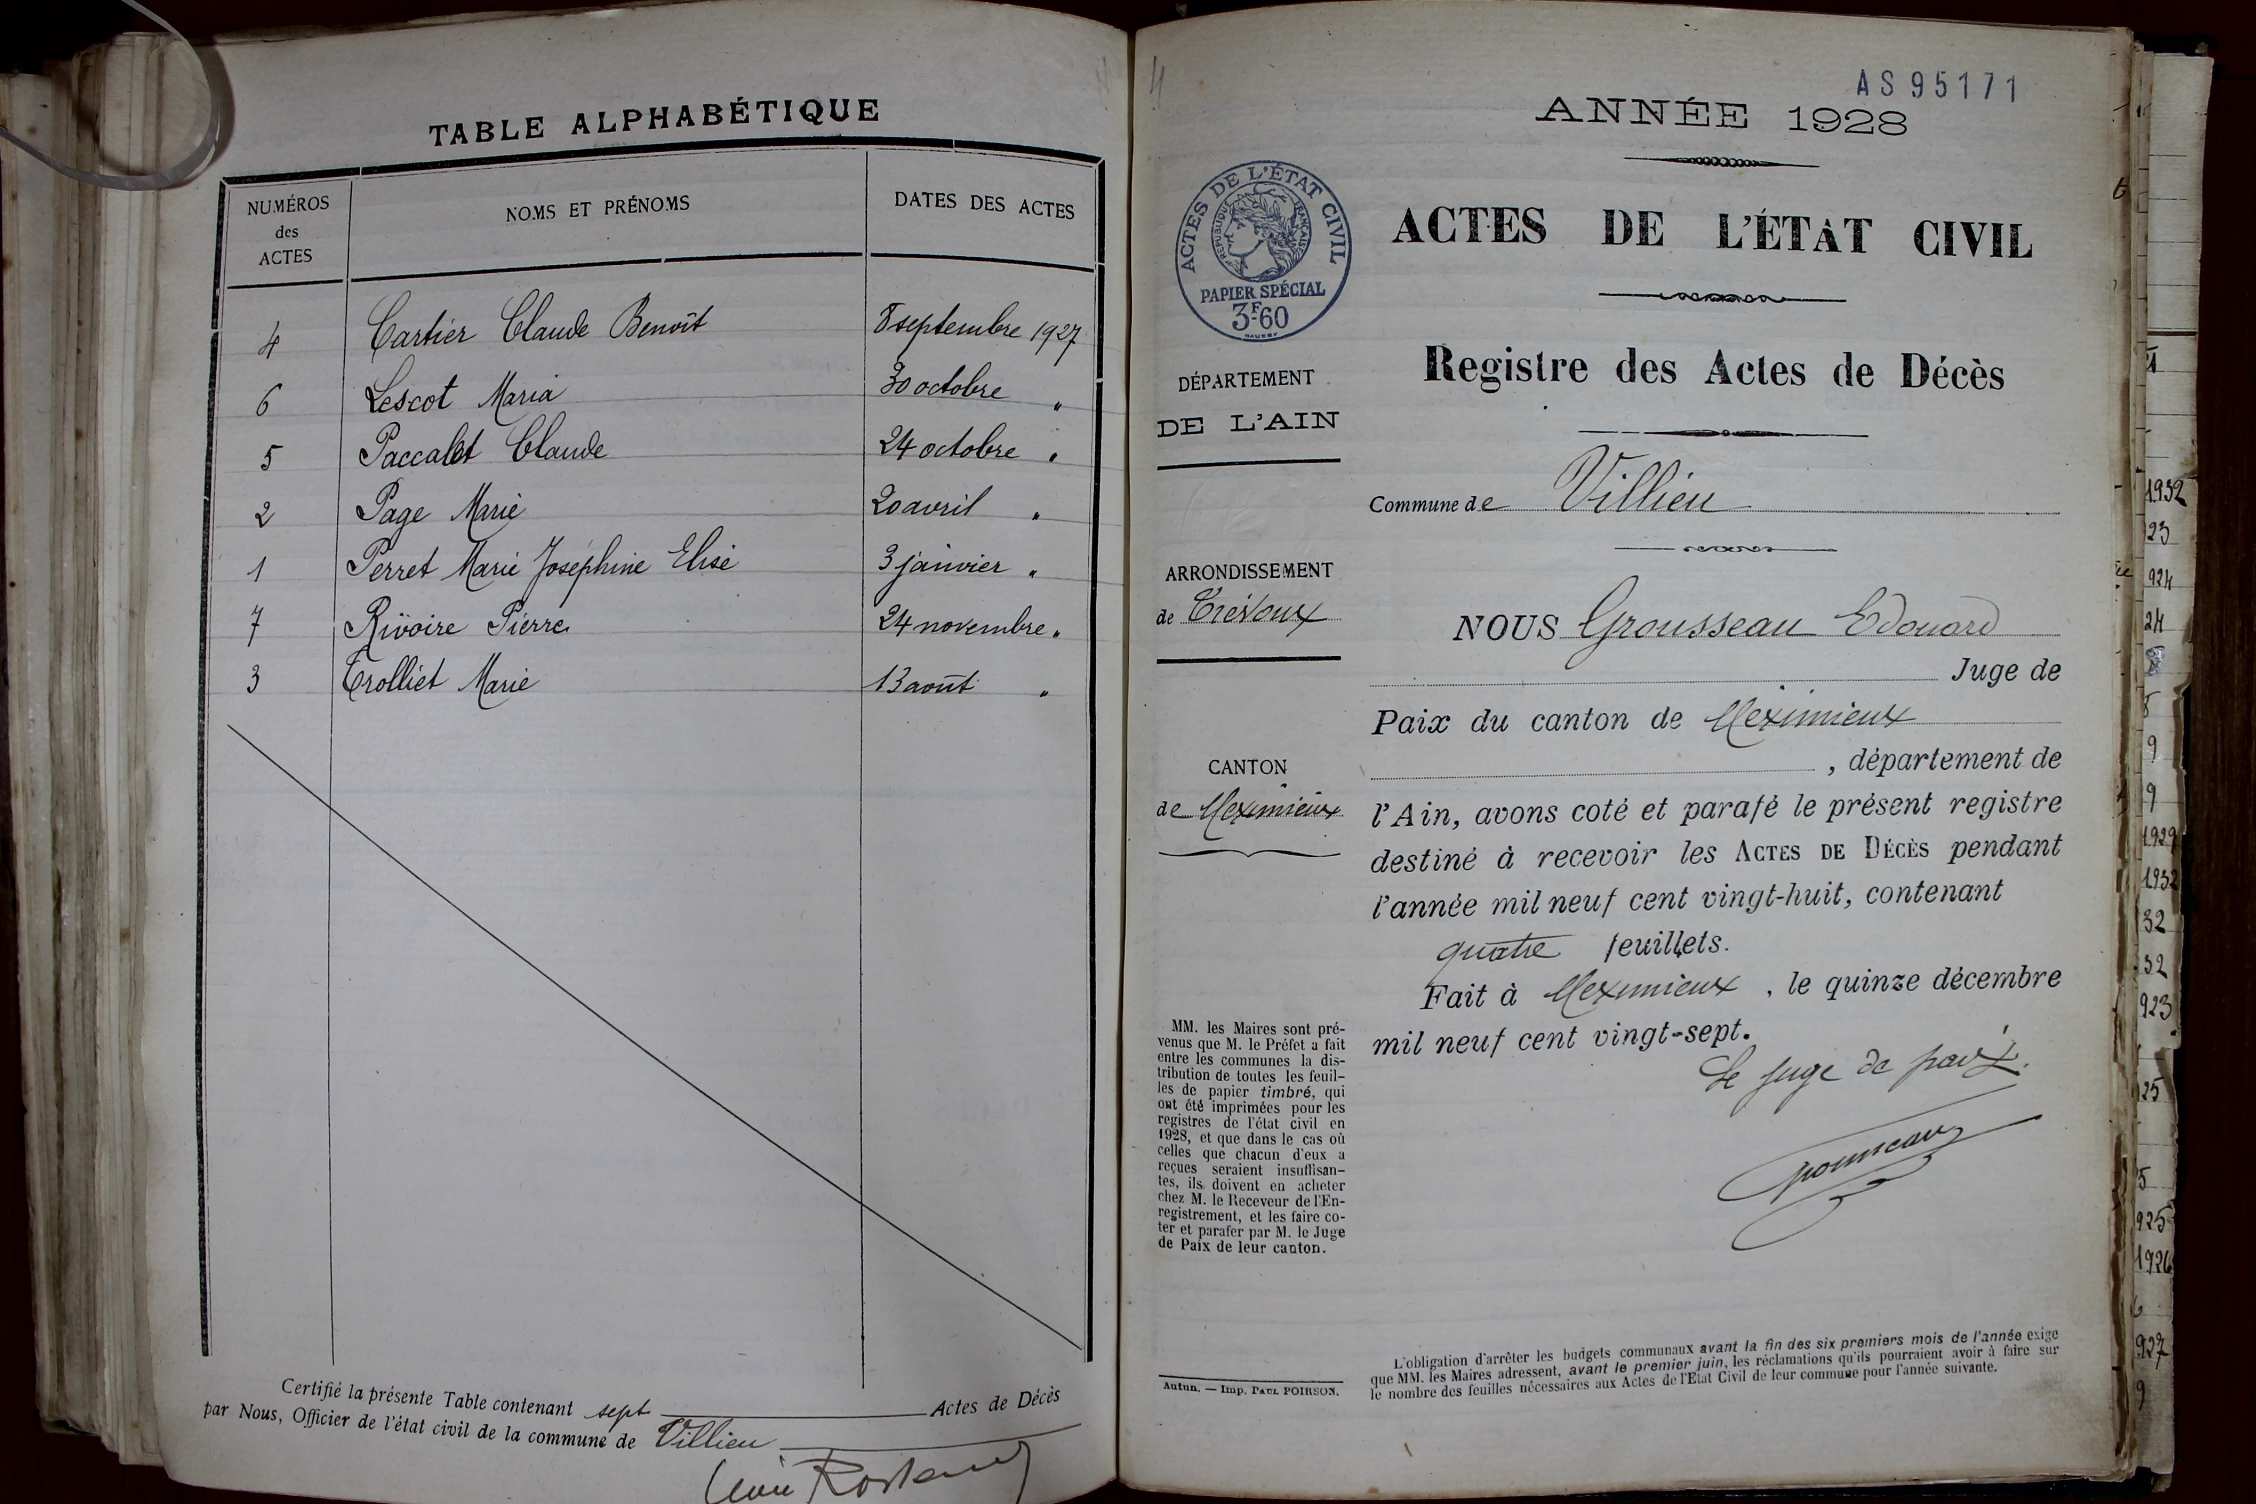 TABLE ALPHABÉTIQUE
NUMÉROS des ACTES NOMS ET PRÉNOMS DATES DES ACTES
4 Cartier Claude Benoît 8 septembre 1927
6 Lescot Maria 30 octobre "
5 Paccalet Claude 24 octobre "
2 Page Marie 20 avril "
1 Perret Marie Joséphine Elise 3 janvier "
7 Rivoire Pierre 24 novembre "
3 Trolliet Marie 13 août "
Certifié la présente Table contenant sept Actes de Décès
par Nous, Officier de l'état civil de la commune de Villieu
AS95171
ANNÉE 1928
ACTES DE L'ÉTAT CIVIL
RÉPUBLIQUE FRANÇAISE
PAPIER SPÉCIAL
3F60
ACTES DE L'ÉTAT CIVIL
Registre des Actes de Décès
DÉPARTEMENT
DE L'AIN
Commune de Villieu
ARRONDISSEMENT
de Trévoux
CANTON
de Meximieux
NOUS Grousseau Edouard
Juge de
Paix du canton de Meximieux
, département de
l'Ain, avons coté et parafé le présent registre
destiné à recevoir les ACTES DE DÉCÈS pendant
l'année mil neuf cent vingt-huit, contenant
quatre feuillets.
Fait à Meximieux , le quinze décembre
mil neuf cent vingt-sept.
Le juge de paix.
MM. les Maires sont pré-
venus que M. le Préfet a fait
entre les communes la dis-
tribution de toutes les feuil-
les de papier timbré, qui
ont été imprimées pour les
registres de l'état civil en
1928, et que dans le cas où
celles que chacun d'eux a
reçues seraient insuffisan-
tes, ils doivent en acheter
chez M. le Receveur de l'En-
registrement, et les faire co-
ter et parafer par M. le Juge
de Paix de leur canton.
Autun. — Imp. PAUL POIRSON.
L'obligation d'arrêter les budgets communaux avant la fin des six premiers mois de l'année exige
que MM. les Maires adressent, avant le premier juin, les réclamations qu'ils pourraient avoir à faire sur
le nombre des feuilles nécessaires aux Actes de l'Etat Civil de leur commune pour l'année suivante.
1932
23
924
24
9
9
1929
1932
32
32
923
25
5
925
1926
6
927
9